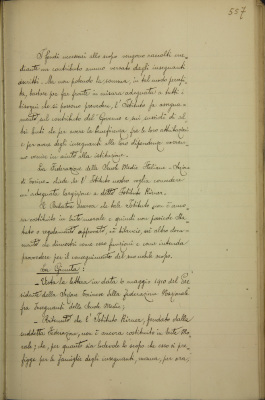 557
I fondi necessari allo scopo vengono raccolti me-
diante un contributo annuo versato dagli insegnanti
iscritti. Ma non potendo la somma, in tal modo
bastare per far fronte in misura adeguata a tutti i
bisogni che si possono prevedere, l'Istituto fa assegna-
mento sul contributo del Governo e sui sussidi di al-
tri Enti che per scopo di beneficenza fra le loro attribuzioni
e per amore degli insegnanti alla loro dipendenza vorran-
no venire in aiuto alla istituzione.
La Federazione delle Scuole Medie Italiane - Sezione
di Torino - chiede che l'Istituto voglia concedere
un'adeguata largizione a detto Istituto
che tale Istituto non è anco-
ra costituito in ente morale e quindi non possiede Sta-
tuto o regolamento approvato, nè bilancio, nè altro docu-
mento che dimostri come esso funzioni e come intenda
provvedere per il conseguimento del suo nobile scopo.
La Giunta:
- Vista la lettera in data 10 maggio 1910 del Pre-
sidente della Sezione Torinese della Federazione Nazionale
fra Insegnanti delle Scuole Medie;
- Ritenuto che l'Istituto fondato dalla
suddetta Federazione, non è ancora costituito in Ente Mo-
rale; che, per quanto sia lodevole lo scopo che esso si pre-
figge per le famiglie degli insegnanti, manca, per ora,